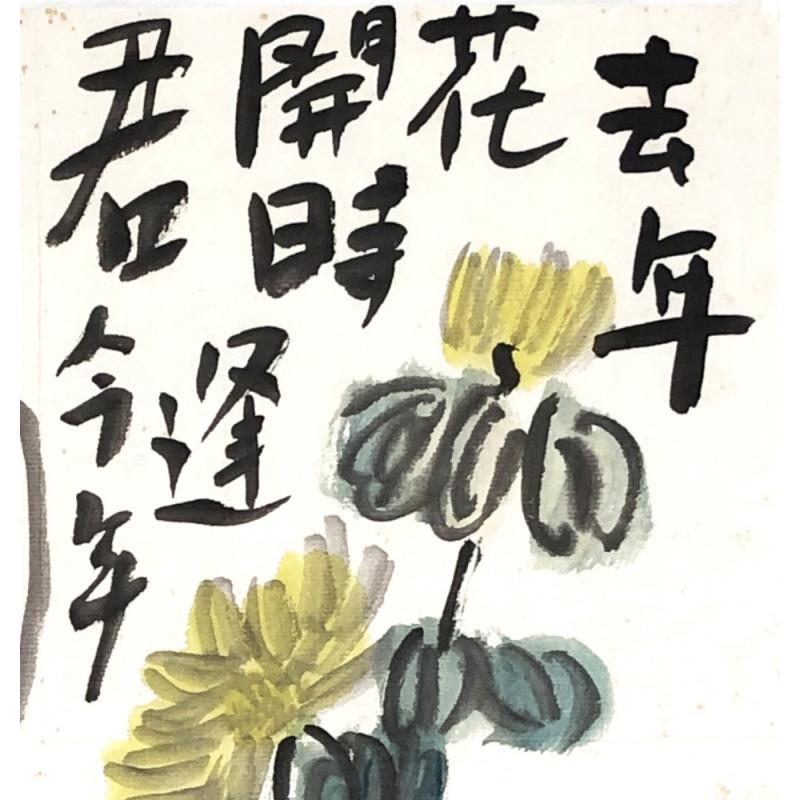 去年
花
開時逢
君今年